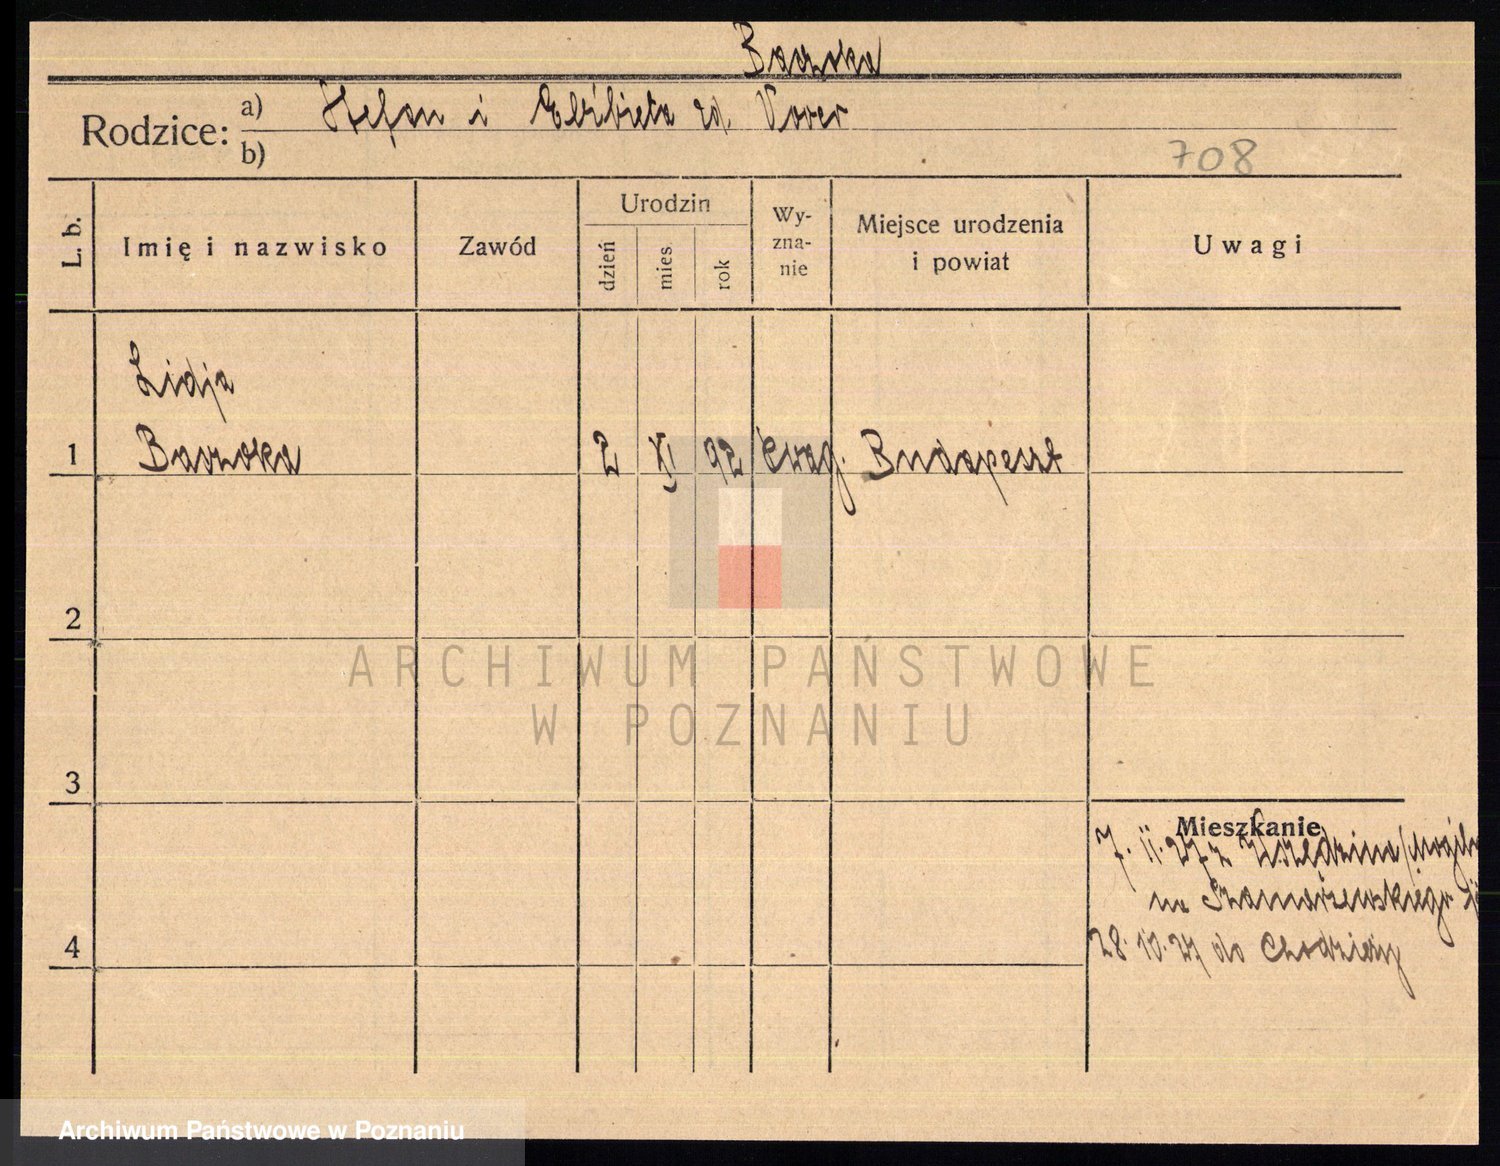 Rodzice: a) Stefan i Elżbieta zd.
b)
708
L. b.
Imię i nazwisko
Zawód
Urodzin
dzień
mies
rok
Wy-
zna-
nie
Miejsce urodzenia
i powiat
Uwagi
Lidja
1 2 XI 92 Ewag. Budapeszt
2
ARCHIWUM PAŃSTWOWE
W POZNANIU
3
Mieszkanie
7. II. 27 z
na Szamarzewskiego
4
28. 10. 27 do Chodzieży
Archiwum Państwowe w Poznaniu